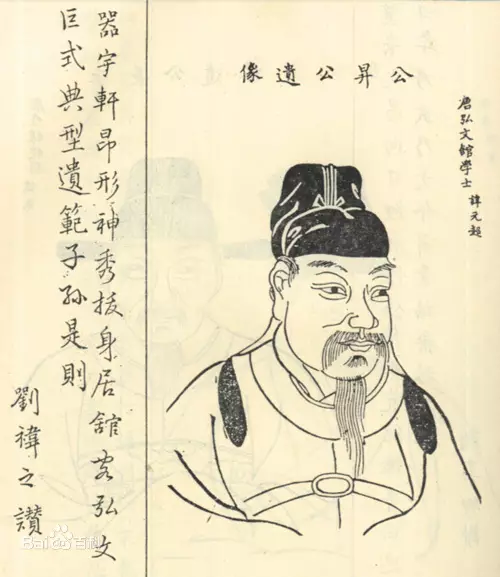 唐弘文館學士 諱元超
公昇公遺像
器宇軒昂形神秀拔身居舘弘文
巨式典型遺範子孫是則
劉禕之讚
Bai百科